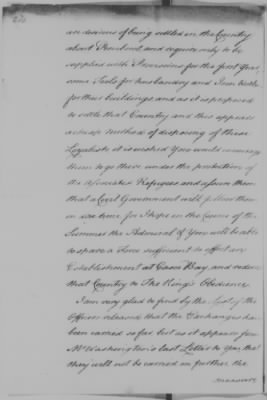 are desirous of being settled in the Country
about Penobscot and require only to be
supplied with Provisions for the first Year,
some Tools for husbandry and Iron Work
for their buildings and as it is proposed
to settle that Country and this appears
a cheap method of disposing of these
Loyalists it is wished You would encourage
them to go there under the protection of
the Associated Refugees and assure them
that a Civil Government will follow them
in due time for I hope in the Course of the
Summer the Admiral & You will be able
to spare a Force sufficient to effect an
Establishment at Casco Bay, and reduce
that Country to The King's Obedience.
I am very glad to find by the List of the
Officers released that the Exchanges has
been carried so far but as it appears from
Mr Washington's last Letter to You, that
they will not be carried on further, the